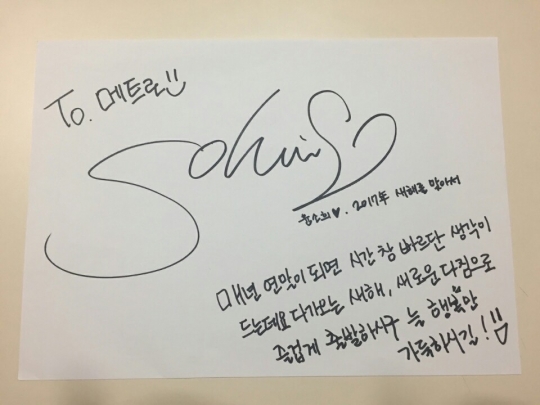 To. 메트로
Sohui
윤소희♥. 2017年 새해를 맞아서
매년 연말이 되면 시간 참 빠르단 생각이
드는데요 다가오는 새해, 새로운 다짐으로
즐겁게 출발하시구 늘 행복만
가득하시길!